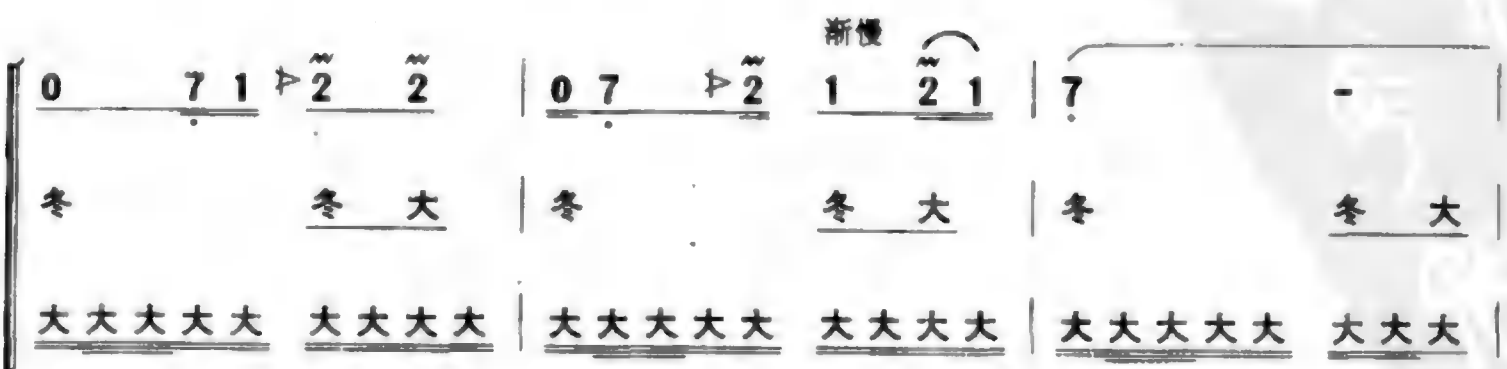 渐慢
0 7 1 2 2 | 0 7 2 1 2 1 | 7 -
冬 冬 大 | 冬 冬 大 | 冬 冬 大
大 大 大 大 大 大 大 大 大 | 大 大 大 大 大 大 大 大 大 | 大 大 大 大 大 大 大 大